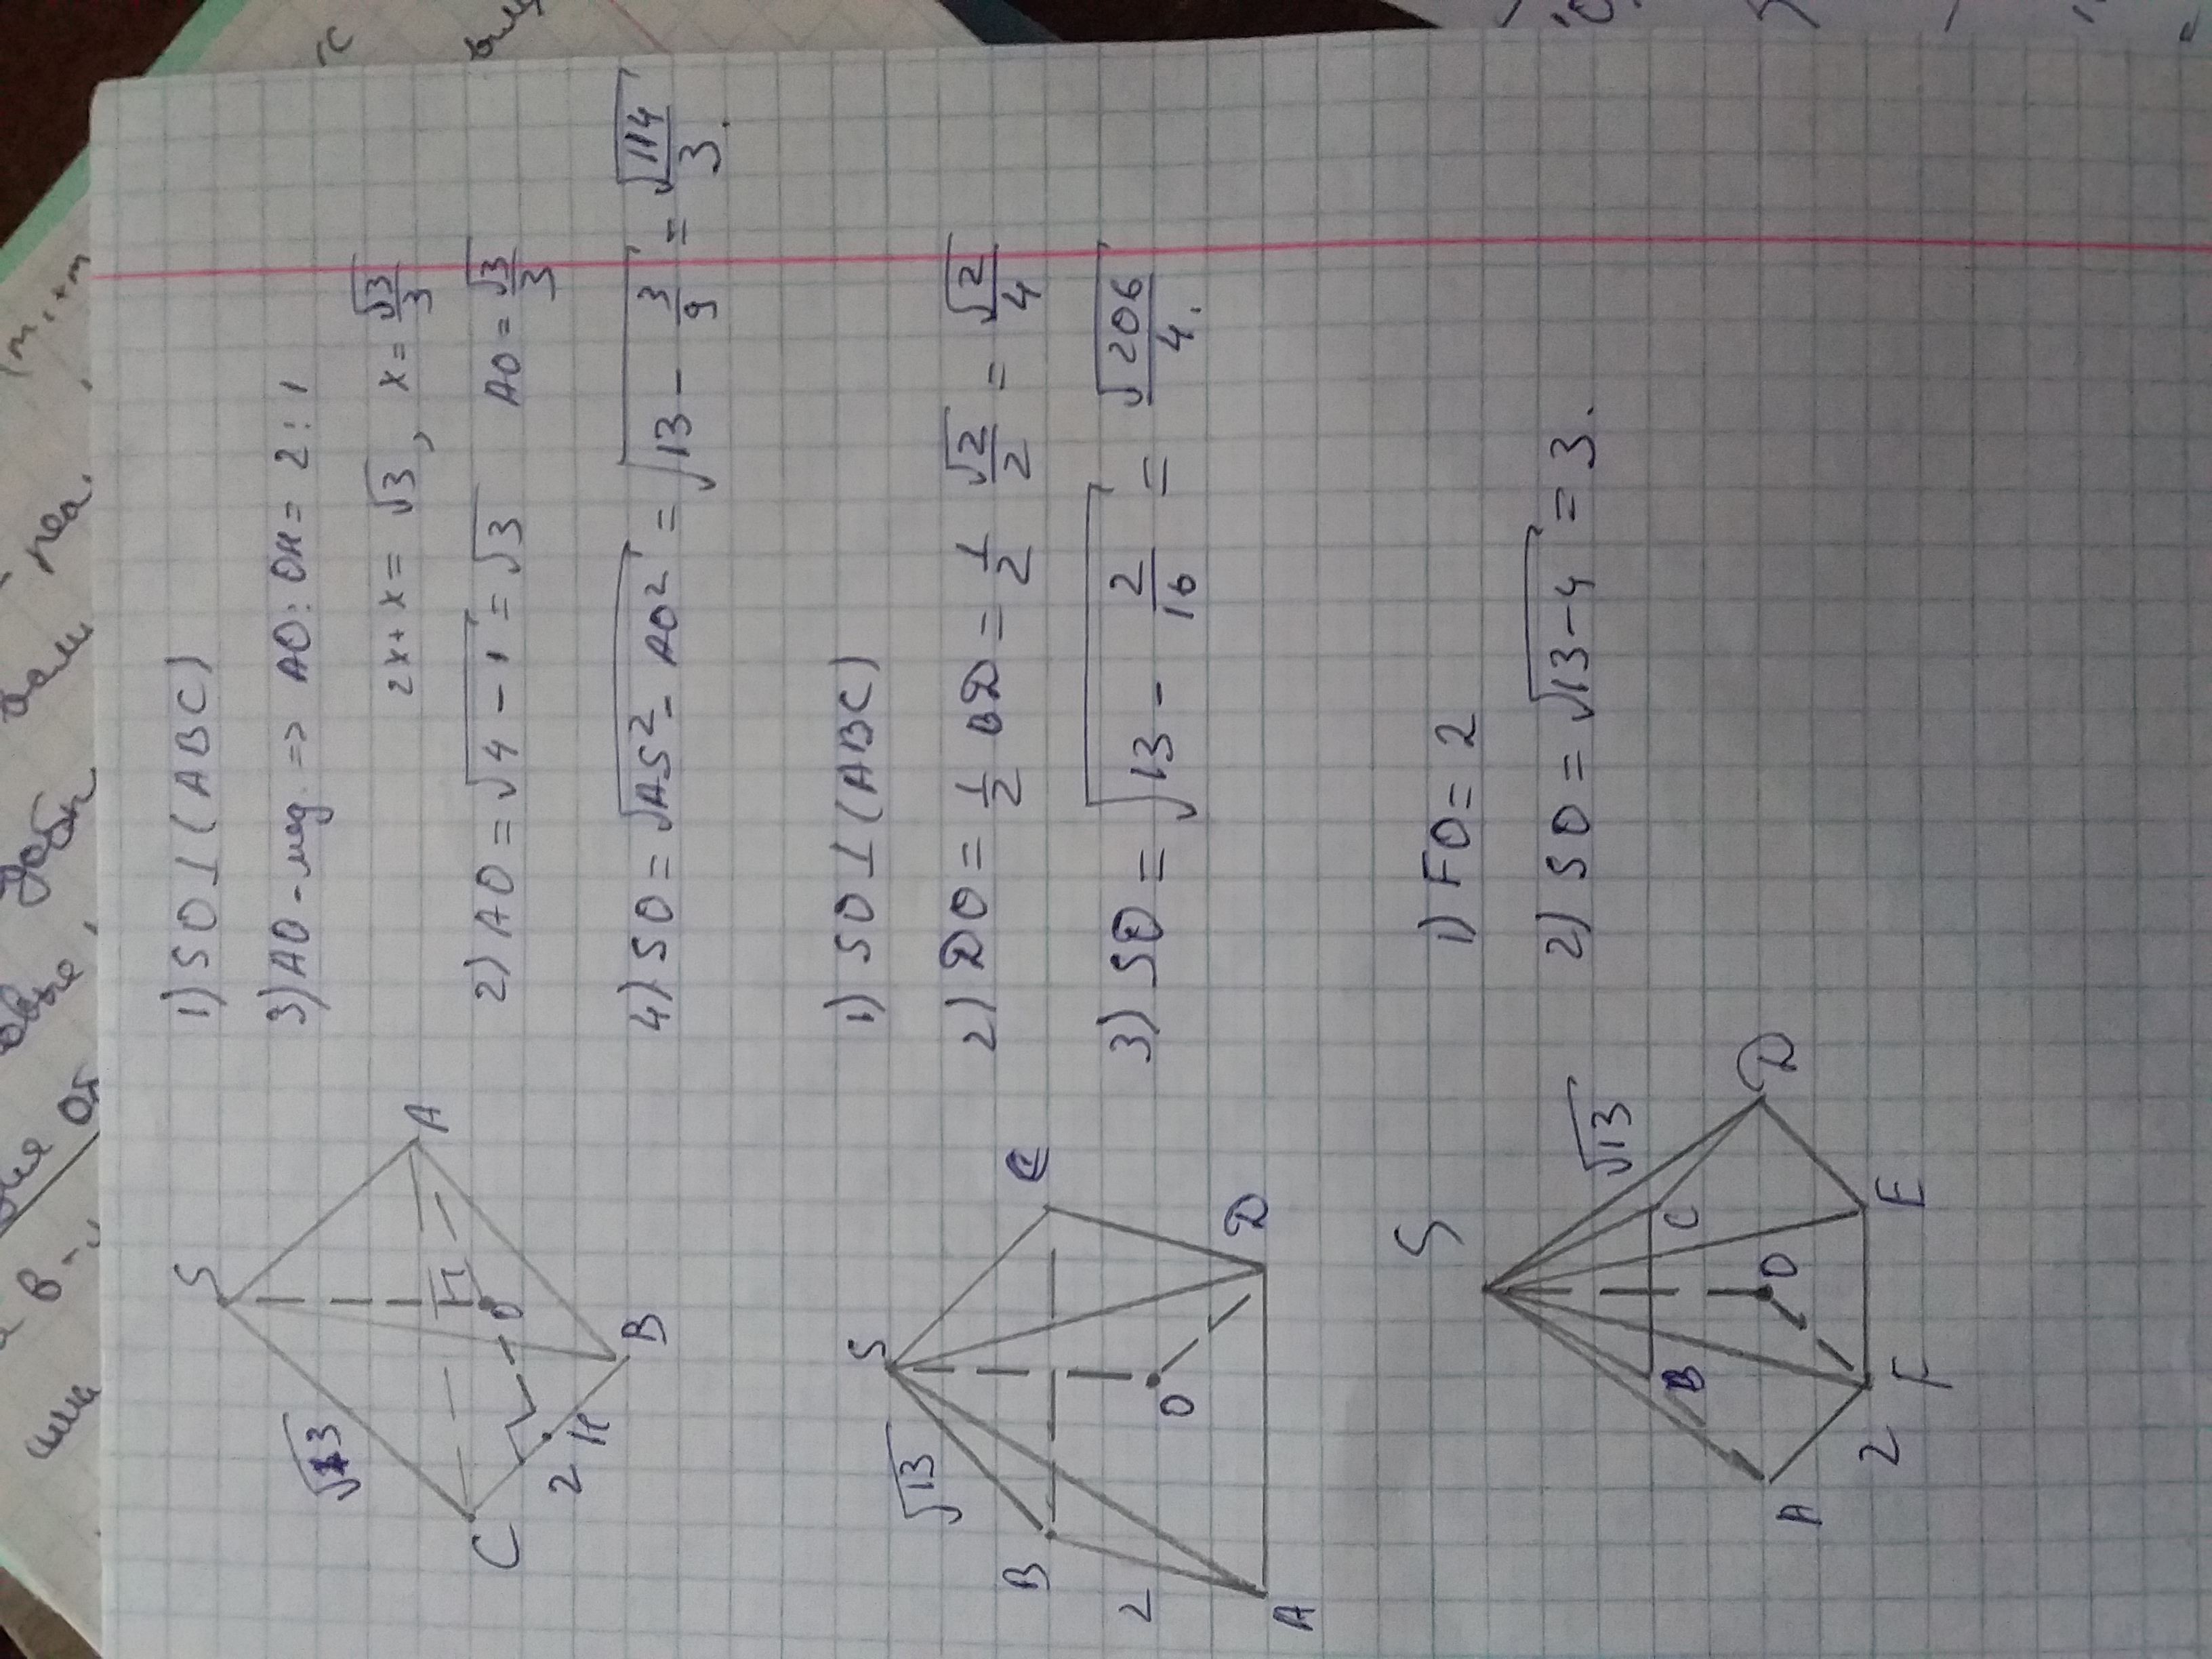 1) SO ⊥ (ABC)
3) AO - мед. => AO : OH = 2 : 1
2x + x = √3, x = √3/3
2) AO = √(4 - 1) = √3 AO = √3/3
4) SO = √(AS² - AO²) = √(13 - 3/9) = √114/3.
S
√13
A
C
O
2
H
B
1) SO ⊥ (ABC)
2) DO = 1/2 BD = 1/2 √2/2 = √2/4
3) SO = √(13 - 2/16) = √206/4.
S
√13
B
C
2
O
A
D
1) FO = 2
2) SO = √(13 - 4) = 3.
S
√13
B
C
A
O
D
2
F
E